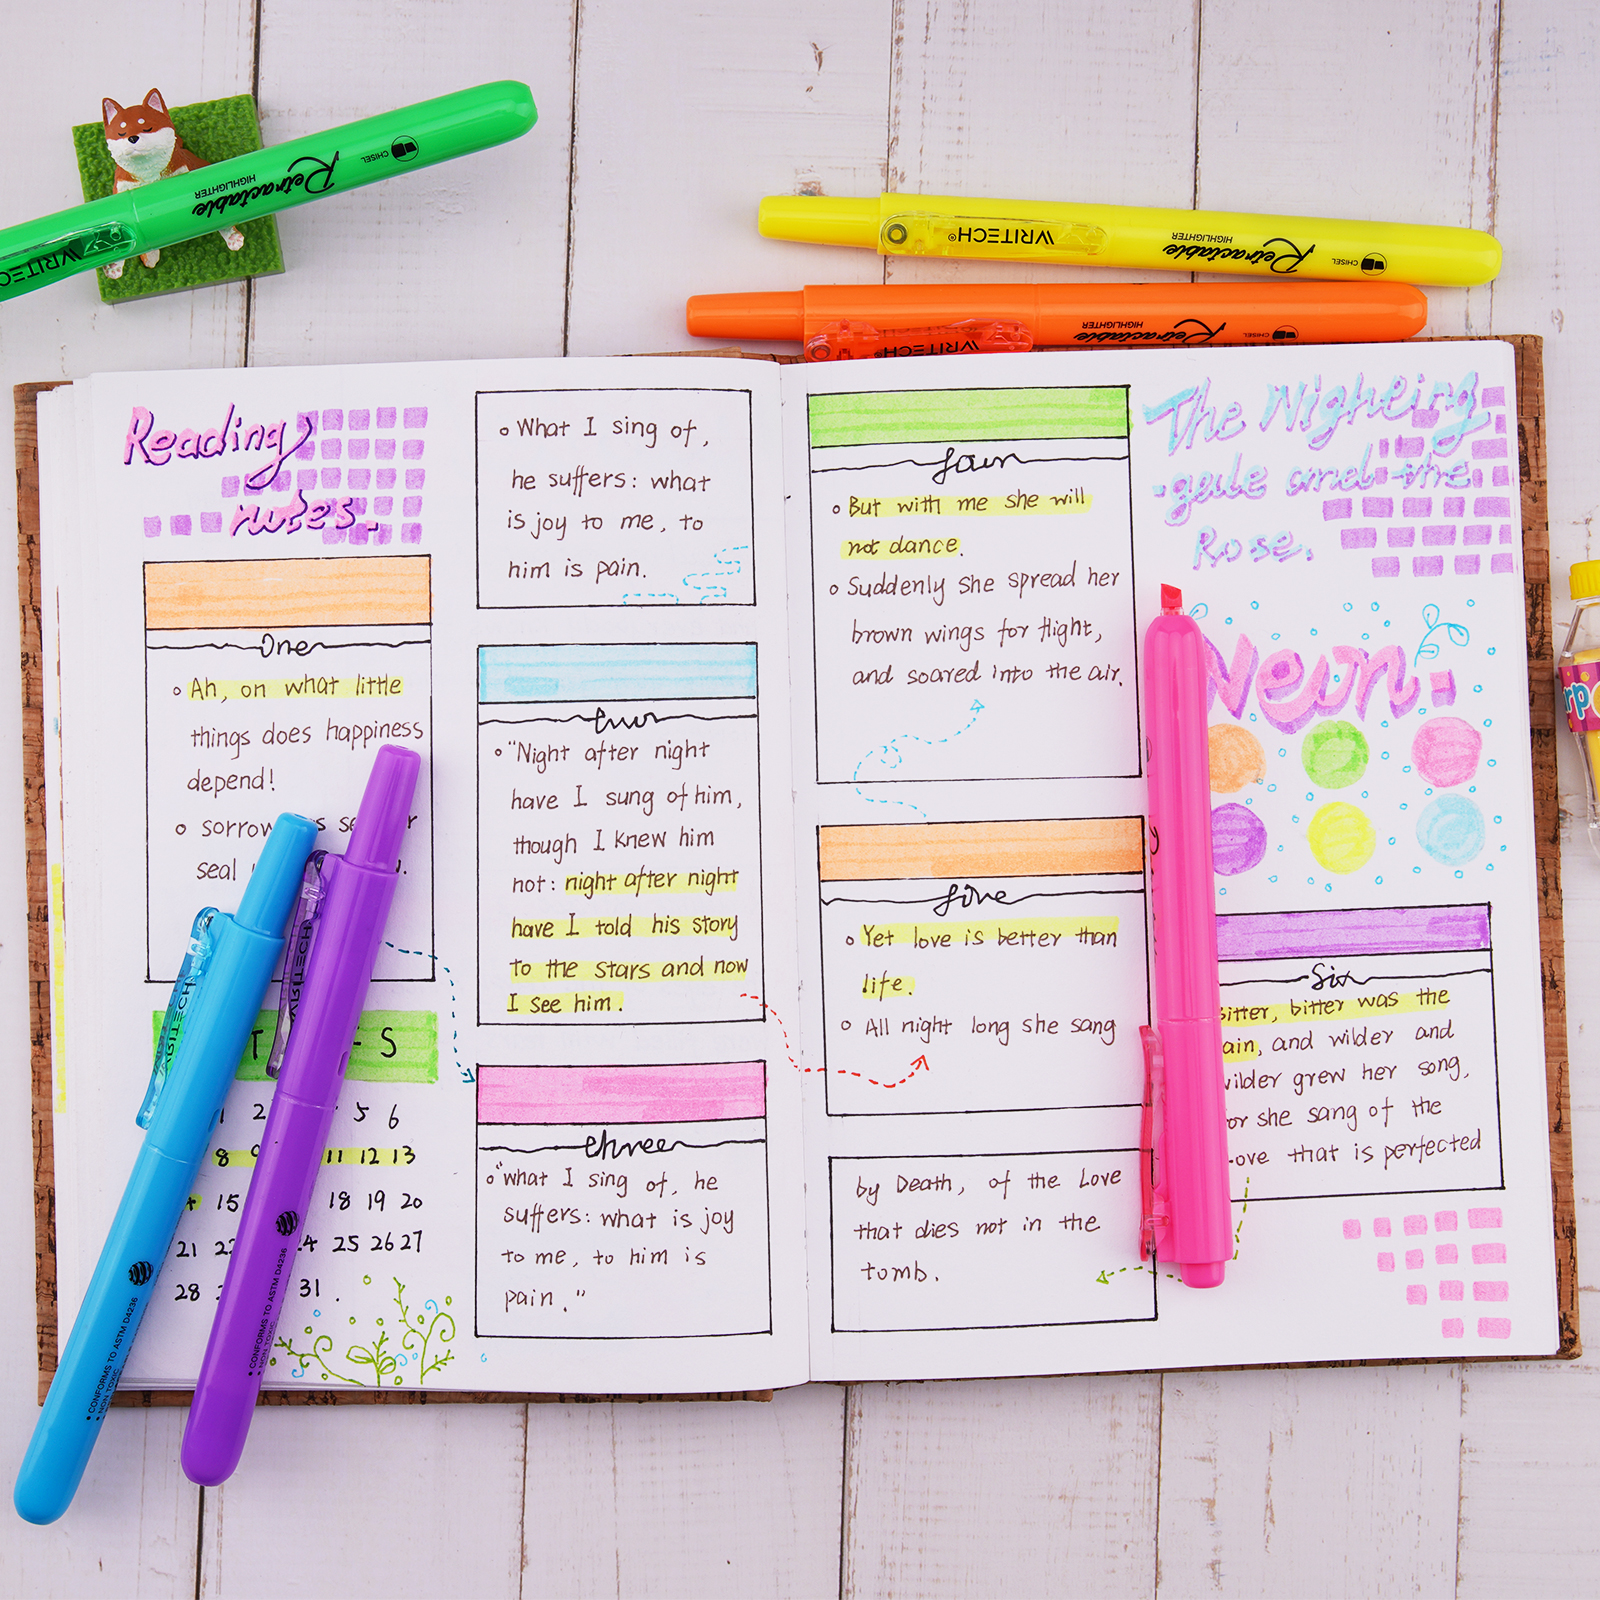 Reading
notes.
One
Ah, on what little
things does happiness
depend!
sorrow
seal
T S
1 2 5 6
8 9 11 12 13
15 18 19 20
21 22 24 25 26 27
28 31.
What I sing of,
he suffers: what
is joy to me, to
him is pain.
two
"Night after night
have I sung of him,
though I knew him
not: night after night
have I told his story
to the stars and now
I see him.
three
"what I sing of, he
suffers: what is joy
to me, to him is
pain."
four
But with me she will
not dance.
Suddenly she spread her
brown wings for flight,
and soared into the air.
five
Yet love is better than
life.
All night long she sang
by Death, of the Love
that dies not in the
tomb.
The Nighting
-gale and the
Rose.
Neon.
Six
Bitter, bitter was the
pain, and wilder and
wilder grew her song,
for she sang of the
Love that is perfected
WRITECH
Retractable
HIGHLIGHTER
CHISEL
WRITECH®
Retractable
HIGHLIGHTER
CHISEL
WRITECH®
Retractable
HIGHLIGHTER
CHISEL
WRITECH
CONFORMS TO ASTM D4236
NON TOXIC
WRITECH
CONFORMS TO ASTM D4236
NON TOXIC